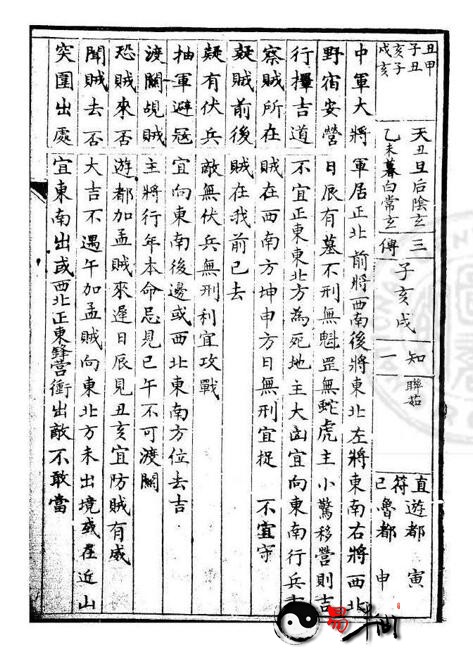 丑甲
子丑
亥子
戌亥
天丑旦后陰玄
乙未暮白常玄
三傳
子亥戌
知一
聯茹
直符巳
遊都寅
魯都申
中軍大將 軍居正北前將西南後將東北左將東南右將西北
野宿安營 日辰有墓不刑無魁罡無蛇虎主小驚移營則吉
行擇吉道 不宜正東東北方為死地主大凶宜向東南行兵吉
察賊所在 賊在西南方坤申方日無刑宜捉 不宜守
疑賊前後 賊在我前已去
疑有伏兵 敵無伏兵無刑利宜攻戰
抽軍避寇 宜向東南後邊或西北東南方位去吉
渡關覘賊 主將行年本命忌見巳午不可渡關
恐賊來否 遊都加孟賊來遲日辰見丑亥宜防賊有威
聞賊去否 大吉不遇午加孟賊向東北方未出境或在近山
突圍出處 宜東南出或西北正東鋒營衝出敵不敢當